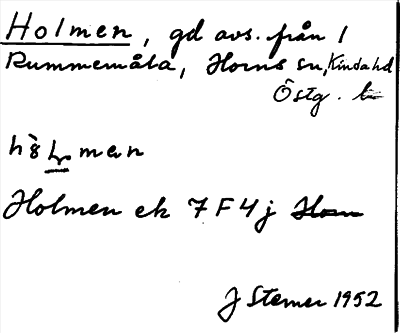 Holmen, gd avs. från 1
Rummemåla, Horns sn, Kinda hd
Östg. l
Holmen ek 7F4j Horn
J Stemer 1952